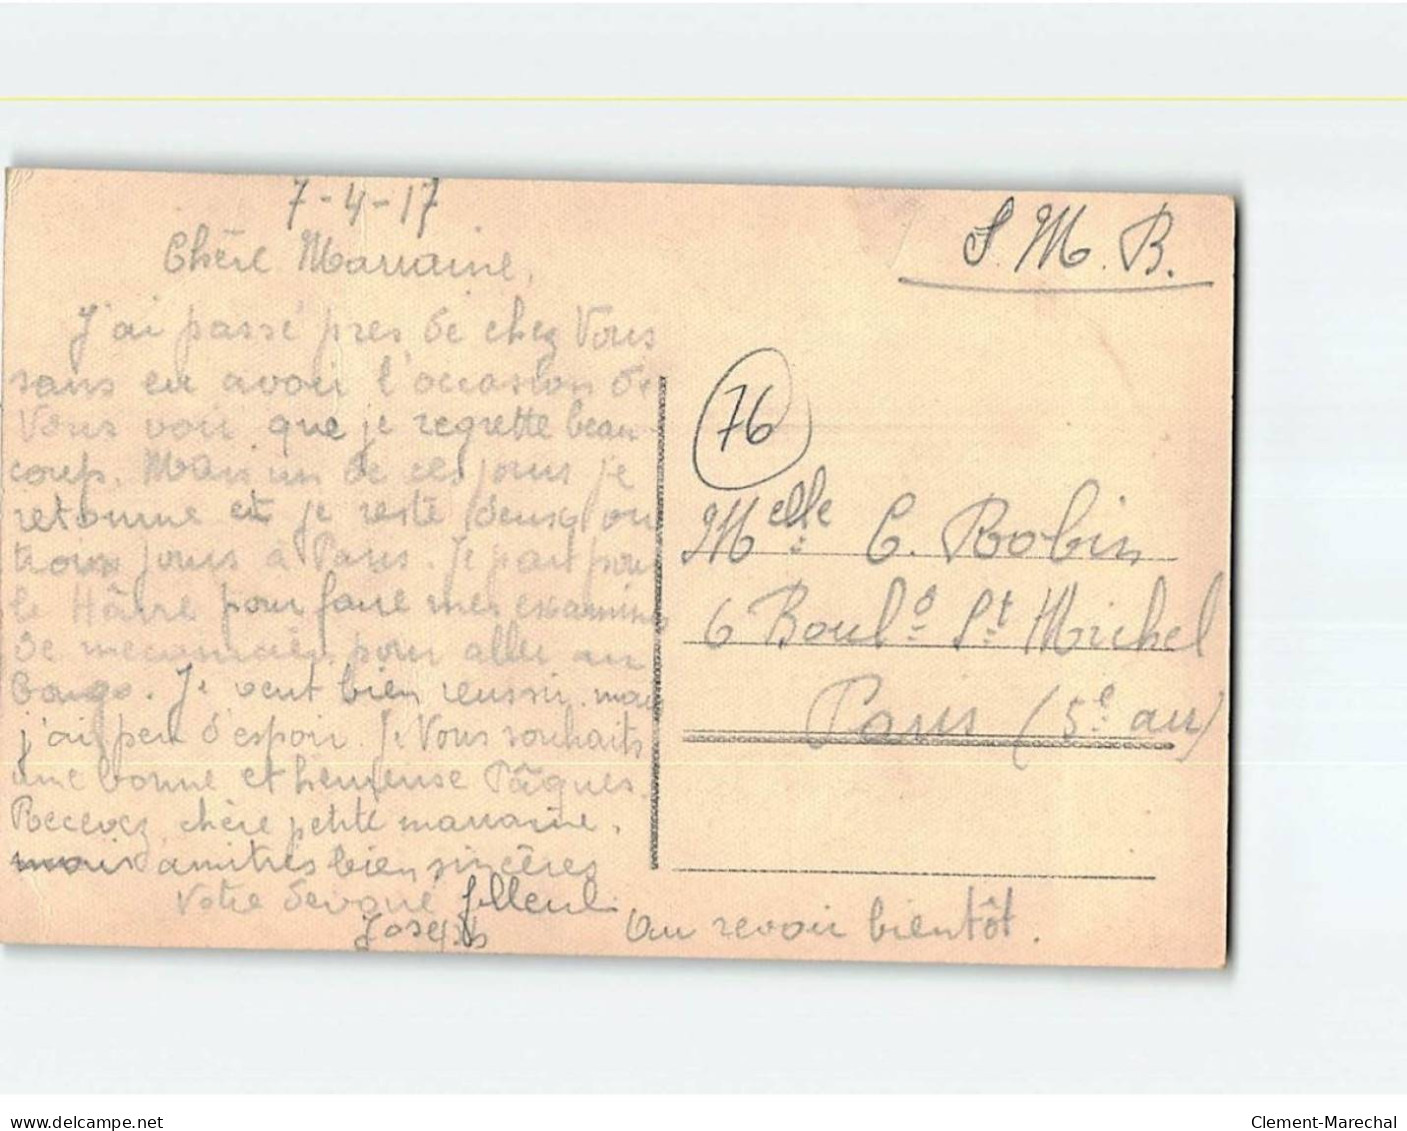 7-4-17
Chère Marraine,
J'ai passé près de chez Vous
sans en avoir l'occasion de
Vous voir que je regrette beau-
coup. Mais un de ces jours je
retourne et je reste deux ou
trois jours à Paris. Je part pour
le Hâvre pour faire mes examins
de mecanicien pour aller au
Congo. Je veut bien reussir mais
j'ai peu d'espoir. Je Vous souhaits
une bonne et heureuse Pâques.
Recevez chère petite marraine,
mais amitiés bien sincères
Votre dévoué filleul
Joseph
Au revoir bientôt.
S. M. B.
76
Melle C. Robin
6 Boul d St Michel
Paris (5e arr)
www.delcampe.net
Clement-Marechal